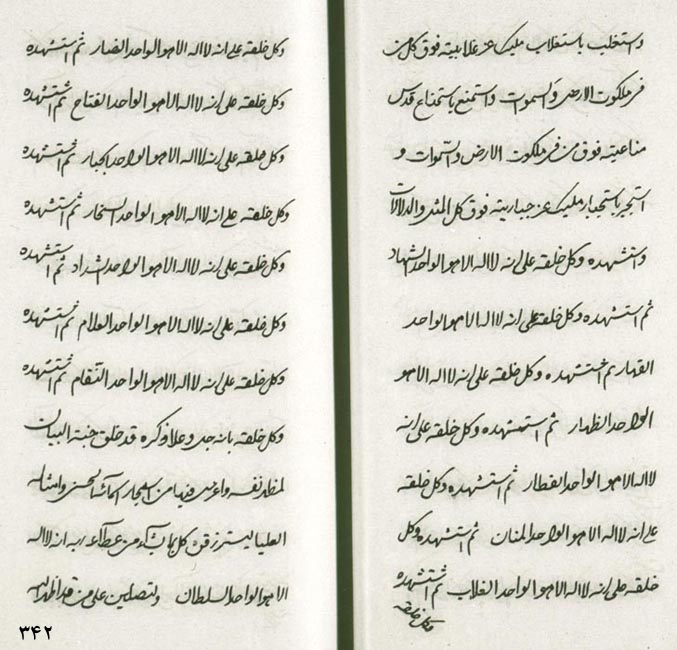 واستغلب باستغلاب مليك عز غلابيته فوق كل من
فى ملكوت الارض والسموات واستمنع باستمناع قدس
مناعيته فوق من فى ملكوت الارض والسموات و
استجبر باستجبار مليك عز جباريته فوق كل المثل والدلالات
واستشهده وكل خلقه على انه لااله الاهو الواحد الشهاد
ثم استشهده وكل خلقه على انه لااله الاهو الواحد
القهار ثم استشهده وكل خلقه على انه لااله الاهو
الواحد الظهار ثم استشهده وكل خلقه على انه
لااله الاهو الواحد الفطار ثم استشهده وكل خلقه
على انه لااله الاهو الواحد المنان ثم استشهده وكل
خلقه على انه لااله الاهو الواحد الغلاب ثم استشهده
وكل خلقه
وكل خلقه على انه لااله الاهو الواحد الضار ثم استشهده
وكل خلقه على انه لااله الاهو الواحد الفتاح ثم استشهده
وكل خلقه على انه لااله الاهو الواحد الجبار ثم استشهده
وكل خلقه على انه لااله الاهو الواحد السخار ثم استشهده
وكل خلقه على انه لااله الاهو الواحد الشداد ثم استشهده
وكل خلقه على انه لااله الاهو الواحد العلام ثم استشهده
وكل خلقه على انه لااله الاهو الواحد النقام ثم استشهده
وكل خلقه بانه جل وعلا ذكره قد خلق جنة البيان
لمظهر نفسه واغرس فيها من اشجار اسمائه الحسنى وامثاله
العليا ليسترزقن كل بما يشاء من عطاء ربه انه لااله
الاهو الواحد السلطان ولتصلين على من قد اظهر الله
۳۴۲